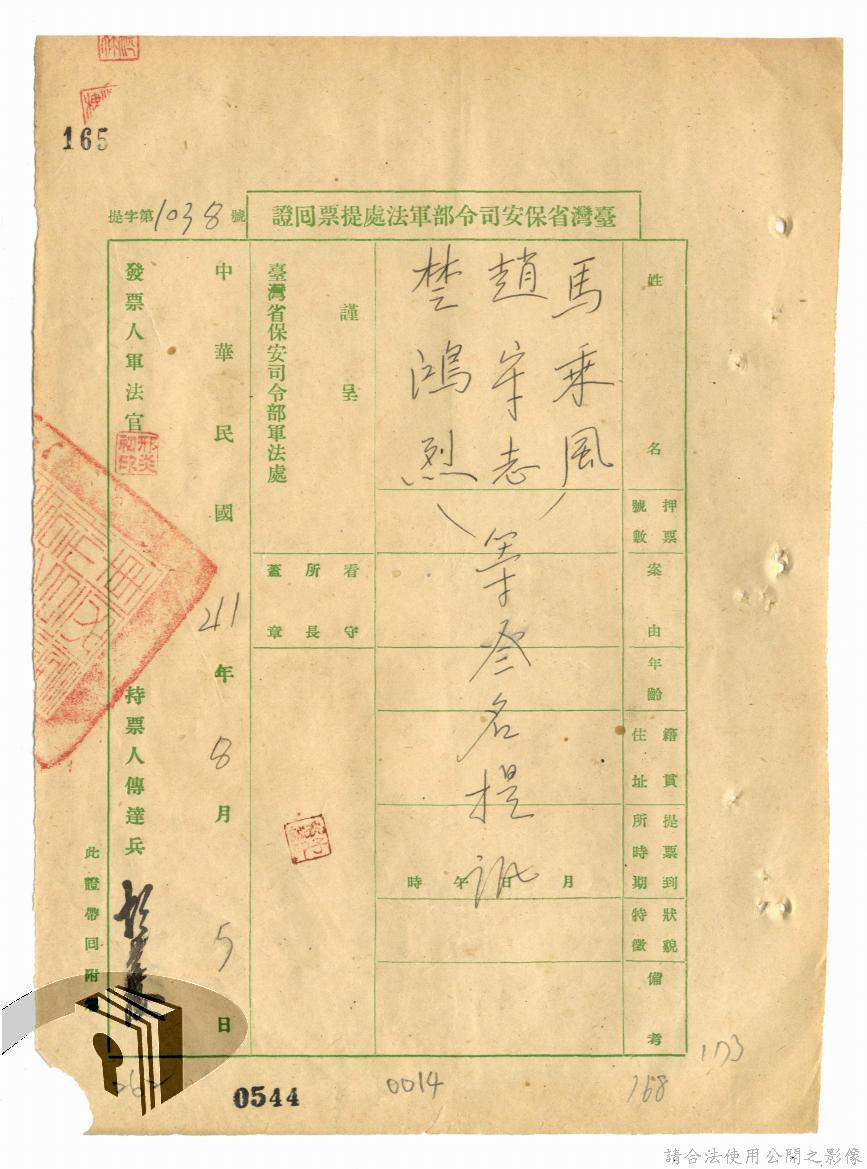 165
提字第1038號
臺灣省保安司令部軍法處提票回證
姓名
馬乘風
趙守志
楚鴻烈
等叄名提訊
押票號數
案由
年齡
籍貫住址
提票到所時期
月日午時
狀貌特徵
備考
謹呈
臺灣省保安司令部軍法處
看守所長蓋章
中華民國41年8月5日
發票人軍法官
邢炎初印
持票人傳達兵
此證帶回附卷
262
0544
0014
168
173
請合法使用公開之影像